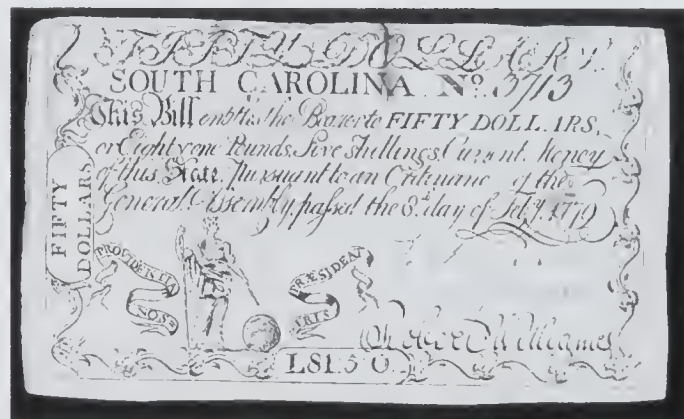 FIFTY DOLLARS.
SOUTH CAROLINA Nº. 3713
This Bill entitles the Bearer to FIFTY DOLLARS,
or Eighty one Pounds, Five Shillings, Current Money
of this State. Pursuant to an Ordinance of the
General Assembly, passed the 8th day of Feby. 1779
FIFTY
DOLLARS
PROVIDENTIA
NOS
PRÆSIDEAT
TRIS
L81:5 0
Williames